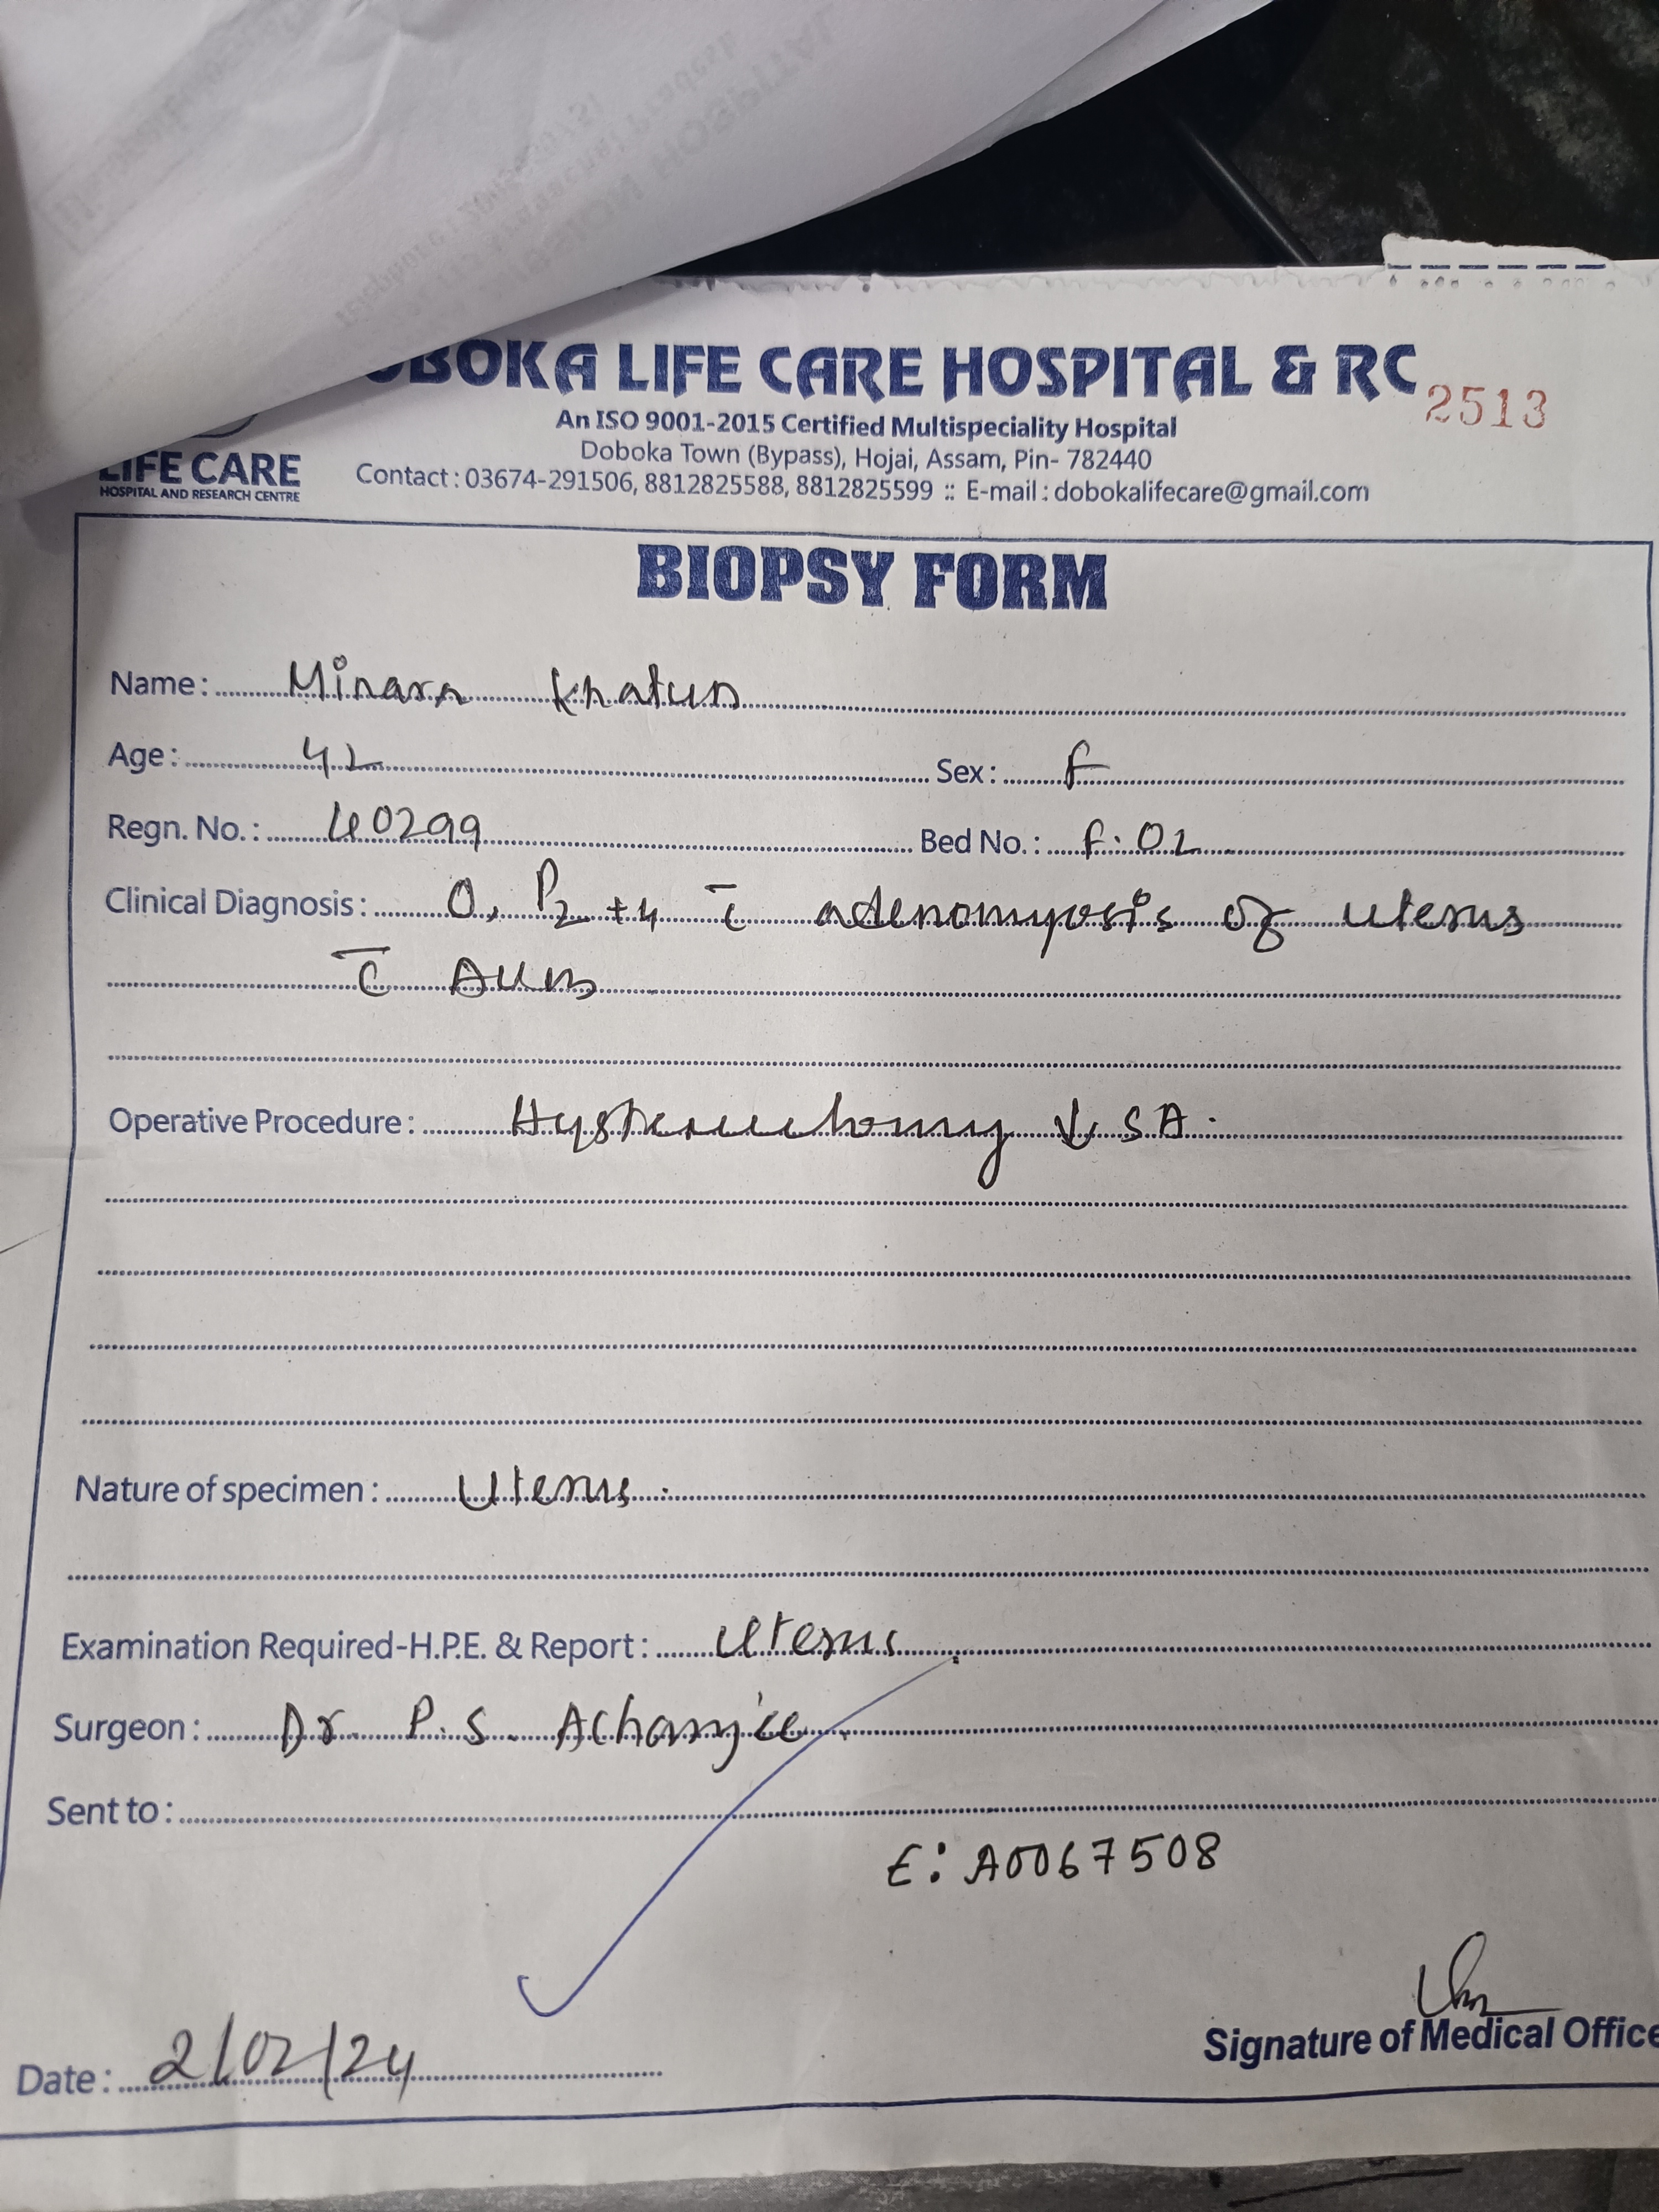 OBOKA LIFE CARE HOSPITAL & RC
2513
An ISO 9001-2015 Certified Multispeciality Hospital
Doboka Town (Bypass), Hojai, Assam, Pin- 782440
LIFE CARE
HOSPITAL AND RESEARCH CENTRE
Contact : 03674-291506, 8812825588, 8812825599 :: E-mail : dobokalifecare@gmail.com
BIOPSY FORM
Name: Minara Khatun
Age: 42 Sex: F
Regn. No.: 40299 Bed No.: F.02
Clinical Diagnosis: P2+4 c̄ adenomyosis of uterus
c̄ AUB
Operative Procedure: Hysterectomy SA.
Nature of specimen: Uterus.
Examination Required-H.P.E. & Report: Uterus
Surgeon: Dr. P.S. Acharjee.
Sent to:
E: A0067508
Signature of Medical Office
Date: 2/02/24